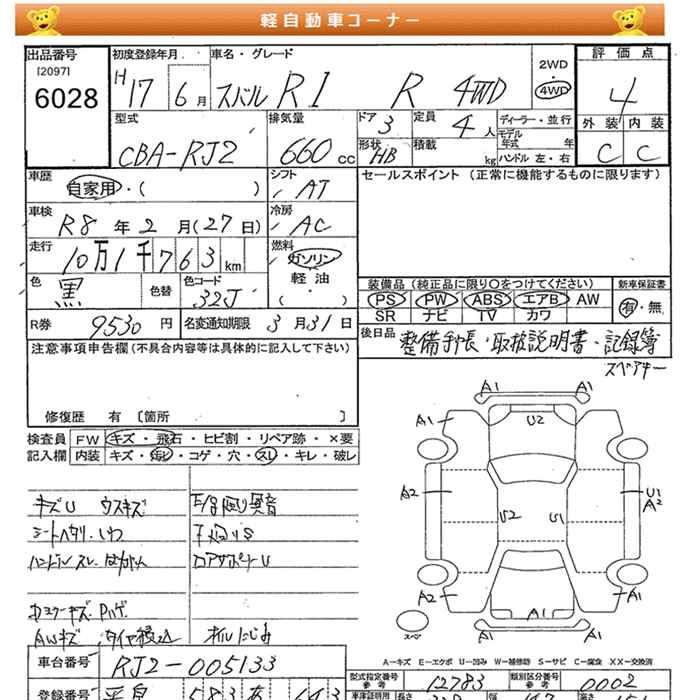 軽自動車コーナー
出品番号 初度登録年月 車名・グレード 2WD 評価点
[2097] 6028 H17 6月 スバル R1 R 4WD 4WD 4
型式 排気量 ドア 3 定員 4人 ディーラー・並行 外装 内装
モデル年式 年
CBA-RJ2 660cc 形状 HB 積載 kg ハンドル 左・右 C C
車歴 自家用・( ) シフト AT セールスポイント (正常に機能するものに限ります)
車検 R8年2月(27日) 冷房 AC
走行 10万1千763km 燃料 ガソリン 軽油 ( )
色 黒 色替 色コード 32J
装備品 (純正品に限り○をつけてください) 新車保証書
PS PW ABS エアB AW 有・無
SR ナビ TV カワ
R券 9530円 名変通知期限 3月31日 後日品 整備手帳・取扱説明書・記録簿
スペアキー
注意事項申告欄 (不具合内容等は具体的に記入して下さい)
修復歴 有 [箇所 ]
検査員 FW キズ・飛石・ヒビ割・リペア跡・×要
記入欄 内装 キズ・汚れ・コゲ・穴・スレ・キレ・破レ
キズU ウスキズ
シートヘタリ・シワ
ハンドルスレ
ロアサポートU
AWキズ タイヤ積込 オイルにじみ
A1 A1
A1 U2 A1
A2 U2 U1 U1 A2
A2 A1 A1
A1 A1
スペ
A-キズ E-エクボ U-凹み W-補修跡 S-サビ C-腐食 XX-交換済
車台番号 RJ2-005133
型式指定番号 参考 12783 類別区分番号 参考 0002
登録番号 583 あ
車庫証明用 長さ